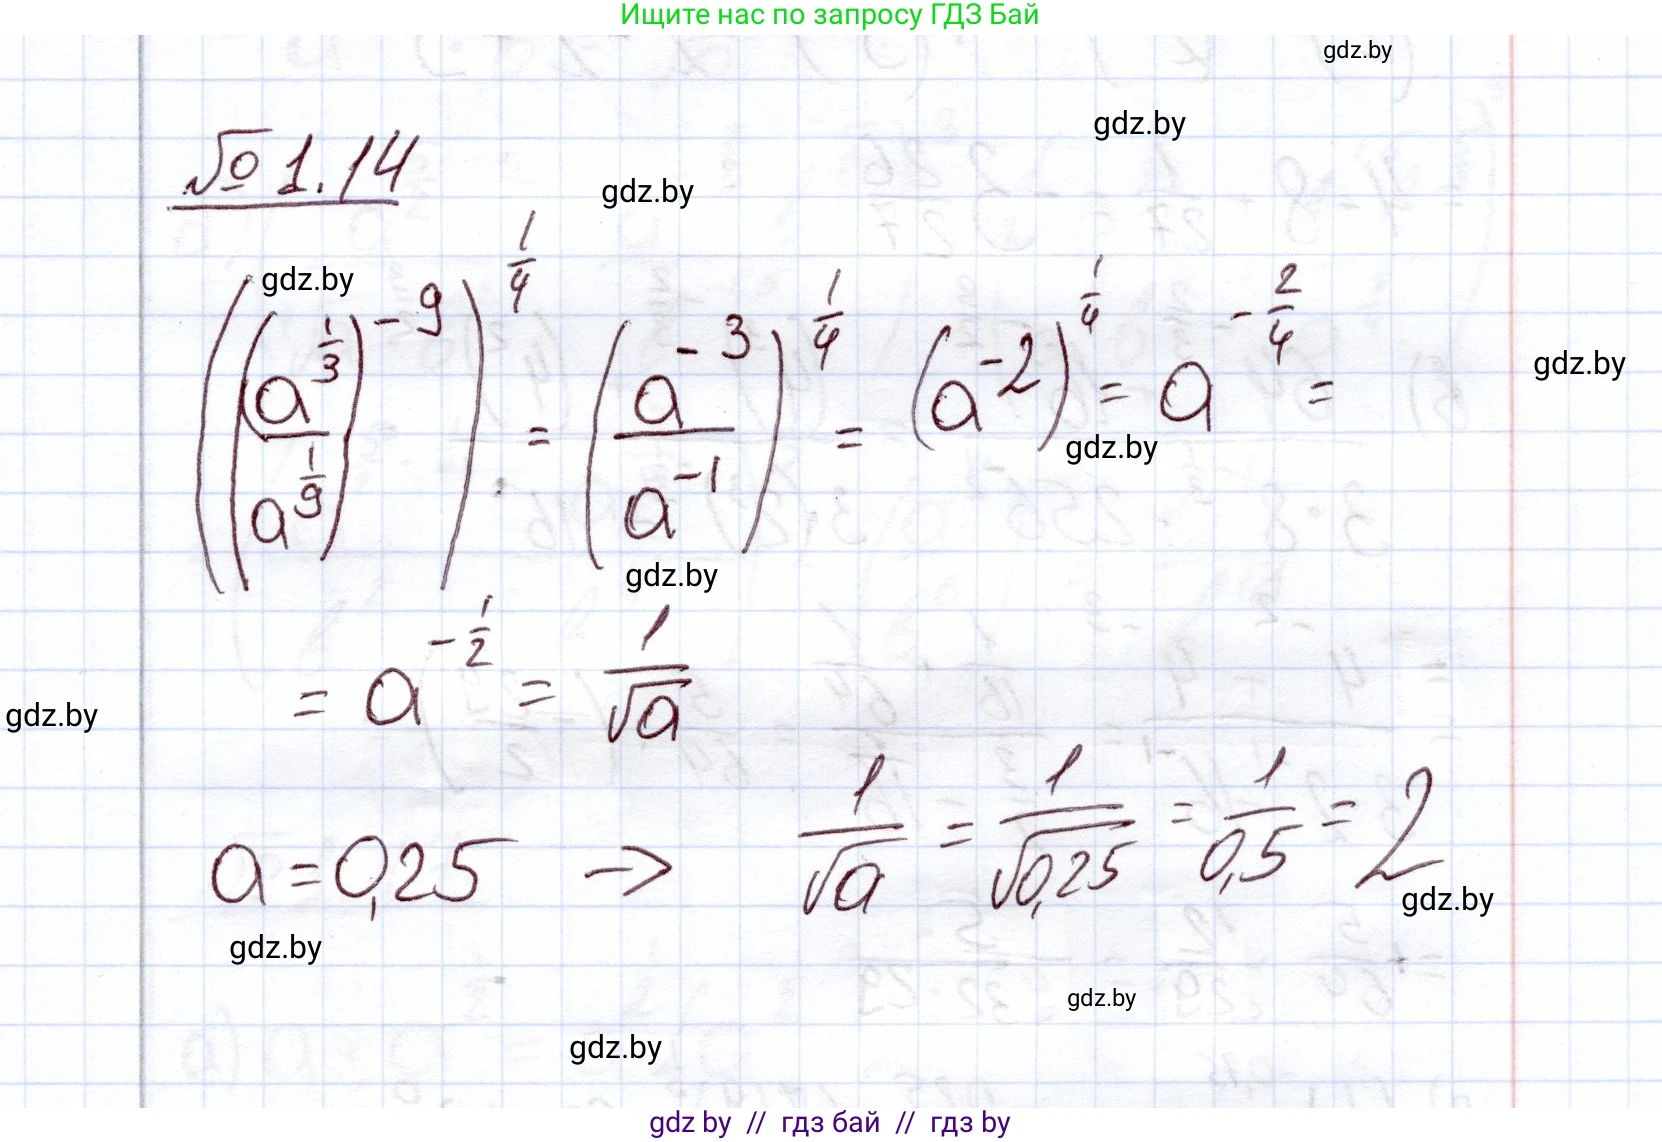 Ищите нас по запросу ГДЗ Бай
gdz.by
gdz.by
№ 1.14
gdz.by
gdz.by
((a^{1/3} / a^{1/9})^{-9})^{1/4} = (a^{-3} / a^{-1})^{1/4} = (a^{-2})^{1/4} = a^{-2/4} =
gdz.by
gdz.by
gdz.by
= a^{-1/2} = 1/√a
gdz.by
a = 0,25 → 1/√a = 1/√0,25 = 1/0,5 = 2
gdz.by
gdz.by
gdz.by
gdz.by
gdz by // гдз бай // гдз by